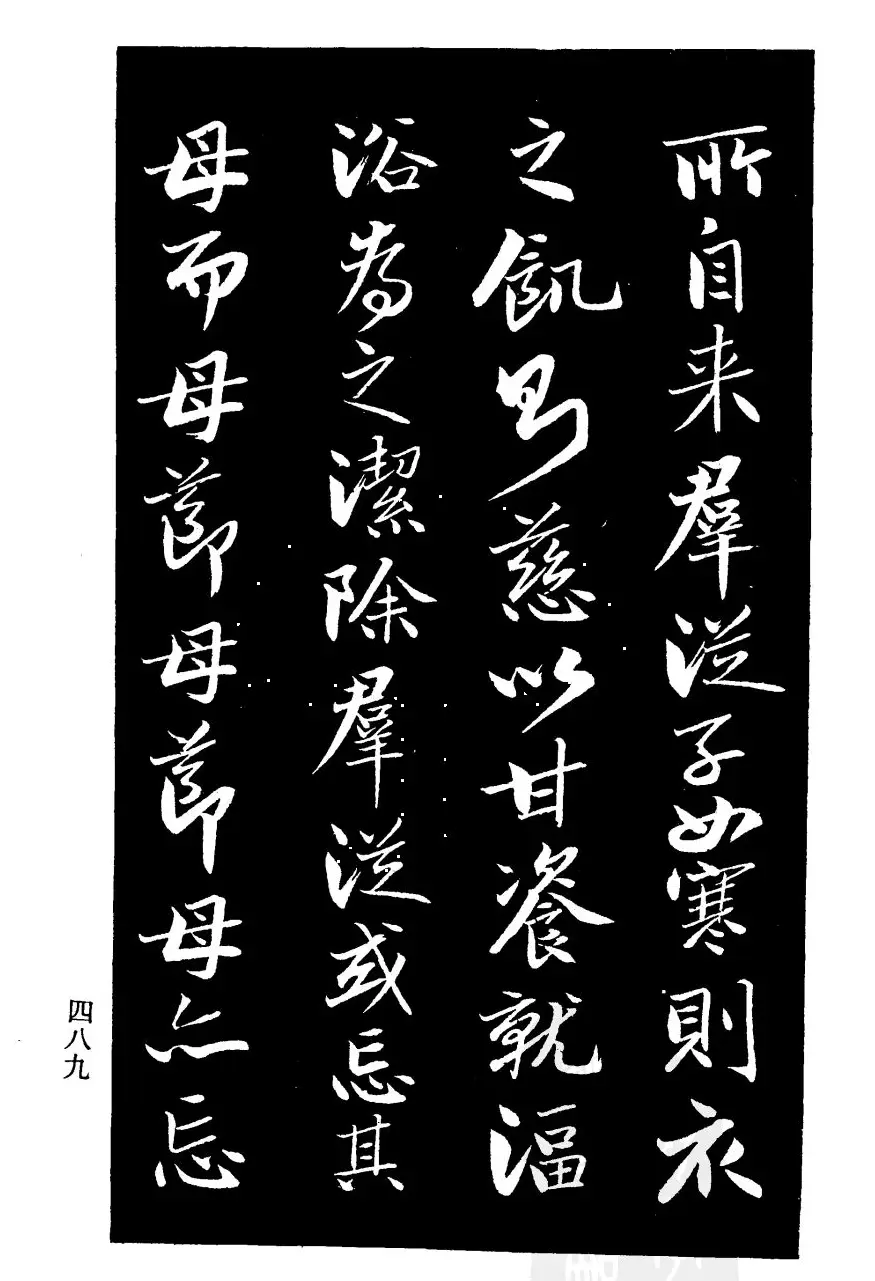 所自来羣從子女寒則衣
之飢則慈以甘餈就湢
浴為之潔除羣從或忘其
母而母莭母莭母亦忘
四八九